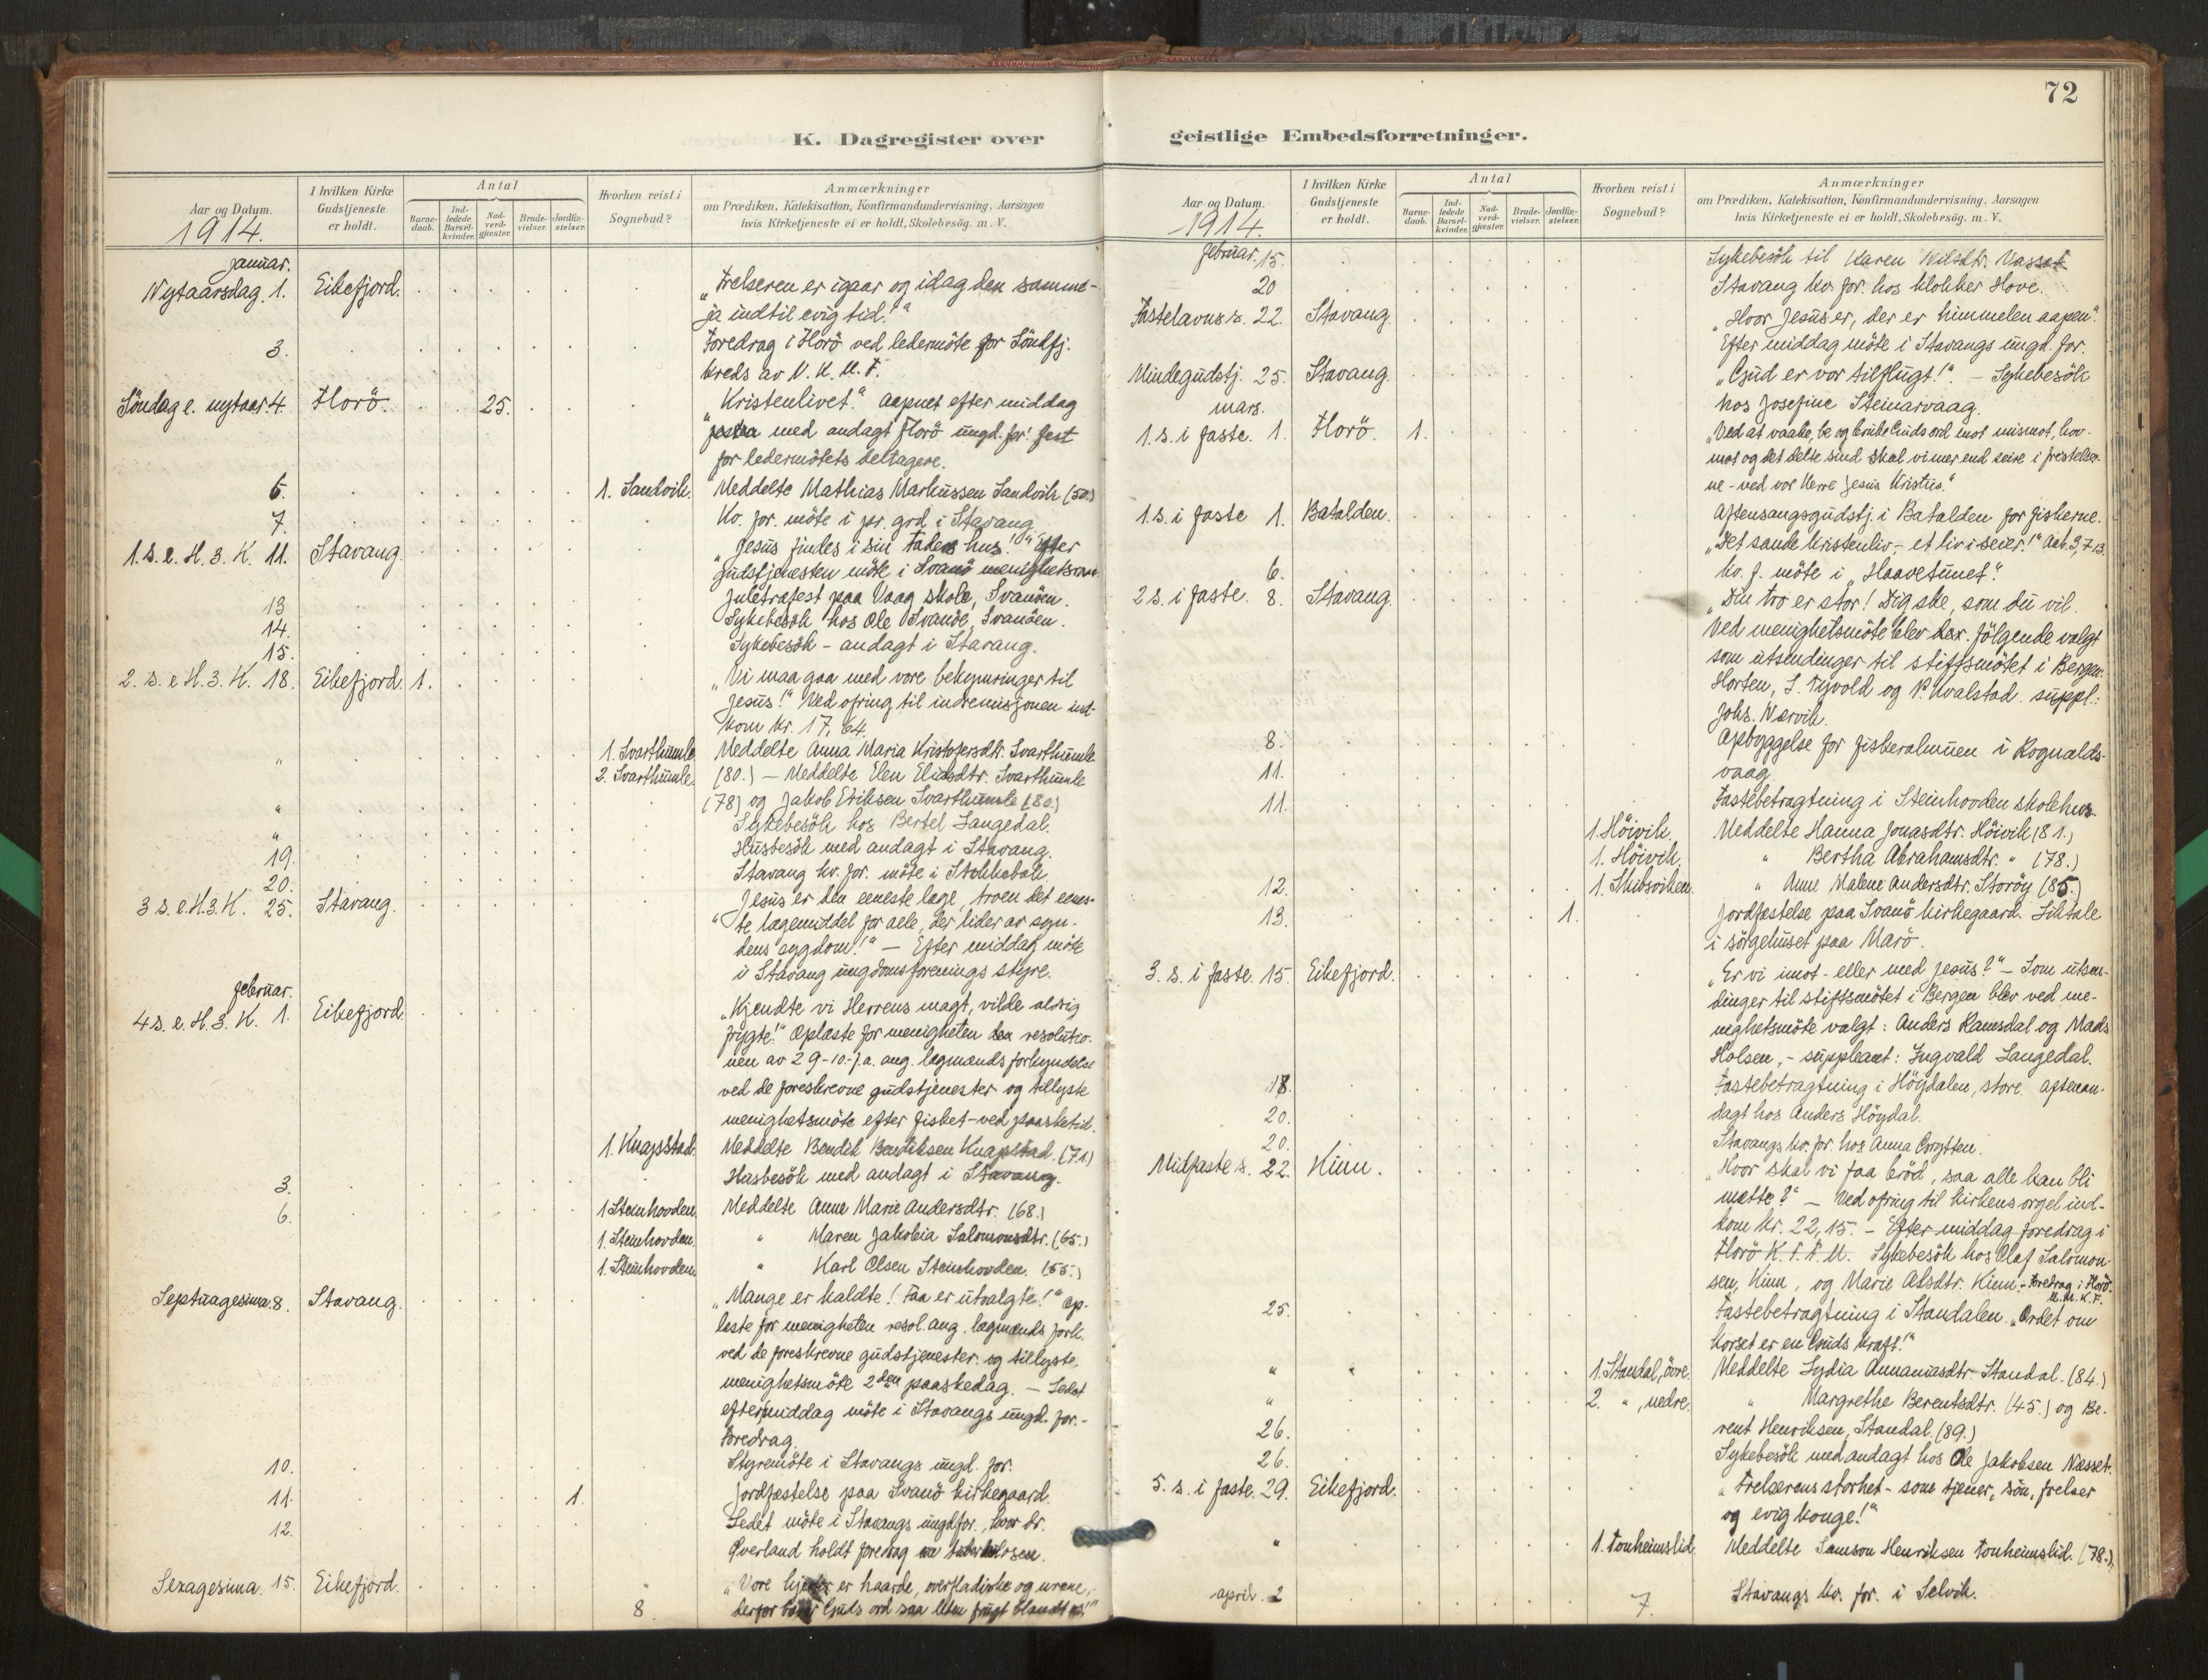 72
K. Dagregister over
geistlige Embedsforretninger.
Aar og Datum.
1914.
I hvilken Kirke Gudstjeneste er holdt.
Antal
Barne-daab.
Ind-ledede Barsel-kvinder.
Nad-verd-gjæster.
Brude-vielser.
Jordfæ-stelser.
Hvorhen reist i Sognebud?
Anmærkninger
om Prædiken, Katekisation, Konfirmandundervisning, Aarsagen
hvis Kirketjeneste ei er holdt, Skolebesög. m. V.
januar.
Nytaarsdag. 1. Eikefjord. "Frelseren er igaar og idag den samme-
ja indtil evig tid!"
3. Foredrag i Florö ved ledermöte for Söndfj.
kreds av N. K. U. F.
Söndag e. nytaar 4. Florö. 25. "Kristenlivet." Aapnet efter middag
med andagt Florö ungd. for! fest
for ledermötets deltagere.
6. 1. Sandvik. Meddelte Mathias Markussen Sandvik (50.)
7. Kv. for. möte i pr. grd i Stavang.
1. s. e. H. 3. K. 11. Stavang. "Jesus findes i sin Faders hus!" Efter
gudstjenesten möte i Svanö menighetsraad.
13 Juletræfest paa Vaag skole, Svanöen.
14. Sykebesök hos Ole Svanöe, Svanöen.
15. Sykebesök - andagt i Stavang.
2. s. e H. 3. K. 18. Eikefjord. 1. "Vi maa gaa med vore bekymringer til
Jesus!" Ved ofring til indremisjonen ind-
kom kr. 17,64.
" 1. Svarthumle. Meddelte Anna Maria Kristofersdtr. Svarthumle
2. Svarthumle. (80.) - Meddelte Elen Eliasdtr. Svarthumle
(78) og Jakob Eriksen Svarthumle (80.)
" Sykebesök hos Bertel Langedal.
" Husbesök med andagt i Stavang.
19.
20. Stavang kv. for. möte i Stokkebak.
3 s. e. H. 3. K. 25. Stavang. "Jesus er den eneste læge, troen det enes-
te lægemiddel for alle, der lider av syn-
dens sygdom!" - Efter middag möte
i Stavang ungdomsforenings styre.
februar.
4 s. e. H. 3. K. 1. Eikefjord. "Kjendte vi Herrens magt, vilde aldrig
frygte!" Oplæste for menigheten den resolutio-
nen av 29-10-f.a. ang. lægmænds forkyndelse
ved de foreskrevne gudstjenester og tillyste
menighetsmöte efter fisket - ved paasketid.
1. Knapstad. Meddelte Bendik Bendiksen Knapstad. (71.)
3. Husbesök med andagt i Stavang.
6. 1 Steinhovden. Meddelte Anne Marie Andersdtr. (68.)
1. Steinhovden. " Maren Jakobia Salomonsdtr. (65.)
1. Steinhovden. " Karl Olsen Steinhovden. (55.)
Septuagesima. 8. Stavang. "Mange er kaldte! Faa er utvalgte!" Op-
læste for menigheten resol. ang. lægmænds fork.
ved de foreskrevne gudstjenester. og tillyste.
menighetsmöte 2den paaskedag. - Ledet
eftermiddag möte i Stavangs ungd. for. -
Foredrag.
10. Styremöte i Stavangs ungd. for.
11. 1. Jordfæstelse paa Svanö kirkegaard.
12. Ledet möte i Stavangs ungd for., hvor dr.
Överland holdt foredrag om tuberkulosen.
Sexagesima. 15. Eikefjord. "Vore hjerter er haarde, overfladiske og urene,-
derfor bærer Guds ord saa liten frugt blandt os!"
8
Aar og Datum.
1914.
I hvilken Kirke Gudstjeneste er holdt.
Antal
Barne-daab.
Ind-ledede Barsel-kvinder.
Nad-verd-gjæster.
Brude-vielser.
Jordfæ-stelser.
Hvorhen reist i Sognebud?
Anmærkninger
om Prædiken, Katekisation, Konfirmandundervisning, Aarsagen
hvis Kirketjeneste ei er holdt, Skolebesög. m. V.
februar. 15. Sykebesök til Karen Nilsdtr. Vasset
20 Stavang kv. for. hos klokker Hove.
Fastelavns s. 22. Stavang. "Hvor Jesus er, der er himmelen aapen".
Efter middag möte i Stavangs ungd. for.
Mindegudstj. 25. Stavang. "Gud er vor tilflugt!". - Sykebesök
hos Josefine Steinarvaag.
mars.
1. s. i faste. 1. Florö. 1. "Ved at vaake, be og bruke Guds ord mot mismot, hov-
mot og det delte sind skal vi mer end seire i fristelser-
ne - ved vor Herre Jesus Kristus."
1. s. i faste 1. Batalden. Aftensangsgudstj. i Batalden for fiskerne.
"Det sande kristenliv,- et liv i seier!" Aab. 3, 7-13.
6. Kv. f. möte i "Haavetunet".
2 s. i faste. 8. Stavang. "Din tro er stor! Dig ske, som du vil.
Ved menighetsmöte blev der. fölgende valgt
som utsendinger til stiftsmötet i Bergen:
Horten, L. Tyvold og P. Kvalstad. suppl.:
Johs. Nærvik.
8. Opbyggelse for fiskeralmuen i Rognalds-
vaag.
11. Fastebetragtning i Steinhovden skolehus.
11. 1. Höivik. Meddelte Hanna Jonasdtr. Höivik (81.)
1. Höivik. " Bertha Abrahamsdtr. " (78.)
12. 1. Skibsviken. " Anne Malene Andersdtr. Storöy (85.)
13. 1. Jordfæstelse paa Svanö kirkegaard. Liktale
i sörgehuset paa Marö.
3. s. i faste. 15. Eikefjord. "Er vi imot - eller med Jesus?" - Som utsen-
dinger til stiftsmötet i Bergen blev ved me-
nighetsmöte valgt: Anders Ramsdal og Mads
Holsen, - suppleant: Ingvald Langedal.
18. Fastebetragtning i Högdalen, store. Aftenan-
20. dagt hos Anders Högdal.
20. Stavangs kv. for. hos Anna Grytten.
Midfaste s. 22. Kinn. "Hvor skal vi faa bröd, saa alle kan bli
mætte?" - Ved ofring til kirkens orgel ind-
kom kr. 22,15. - Efter middag foredrag i
Florö K. F. F. U. Sykebesök hos Olaf Salomon-
sen, Kinn, og Marie Absdtr. Kinn. - Foredrag i Florö
U. M. K. F.
25. Fastebetragtning i Standalen. "Ordet om
korset er en Guds kraft!"
" " 1. Standal, övre. Meddelte Lydia Annaniasdtr. Standal. (84.)
" 2. ", nedre. " Margrethe Berentsdtr. (45.) og Be-
26. rent Henriksen, Standal. (89.)
26. Sykebesök med andagt hos Ole Jakobsen Næsset.
5. s. i faste. 29. Eikefjord. "Frelserens storhet - som tjener, sön, frelser
og evig konge!"
" 1. Tonheimslid. Meddelte Samson Henriksen Tonheimslid. (78.)
april. 2 7. Stavangs kv. for. i Selvik.